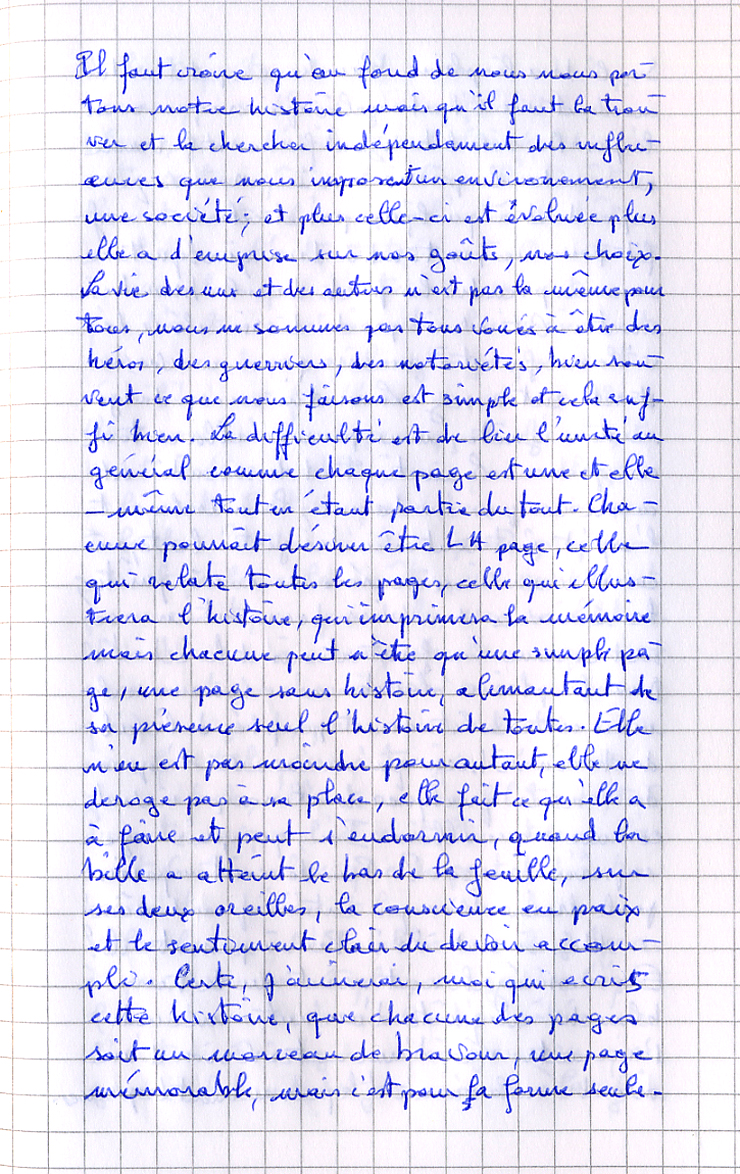 Il faut croire qu'au fond de nous nous por-
tons notre histoire mais qu'il faut la trou-
ver et la chercher indépendament des influ-
ences que nous imposent un environement,
une société; et plus celle-ci est évoluée plus
elle a d'emprise sur nos goûts, nos choix.
La vie des uns et des autres n'est pas la même pour
tous, nous ne sommes pas tous voués à être des
héros, des guerriers, des notoriétés, bien sou-
vent ce que nous faisons est simple et cela suf-
fi bien. La difficulté est de lier l'unité au
général comme chaque page est une et elle
-même tout en étant partie du tout. Cha-
cune pourrait désirer être LA page, celle
qui relate toutes les pages, celle qui illus-
trera l'histoire, qui imprimera la mémoire
mais chacune peut n'être qu'une simple pa-
ge, une page sans histoire, alimantant de
sa présence seul l'histoire de toutes. Elle
n'en est pas moindre pour autant, elle ne
deroge pas à sa place, elle fait ce qu'elle a
à faire et peut s'endormir, quand la
bille a atteint le bas de la feuille, sur
ses deux oreilles, la conscience en paix
et le sentiment clair du devoir accom-
pli. Certe, j'aimerai, moi qui ecrits
cette histoire, que chacune des pages
soit un morceau de bravour, une page
mémorable, mais c'est pour sa forme seule-